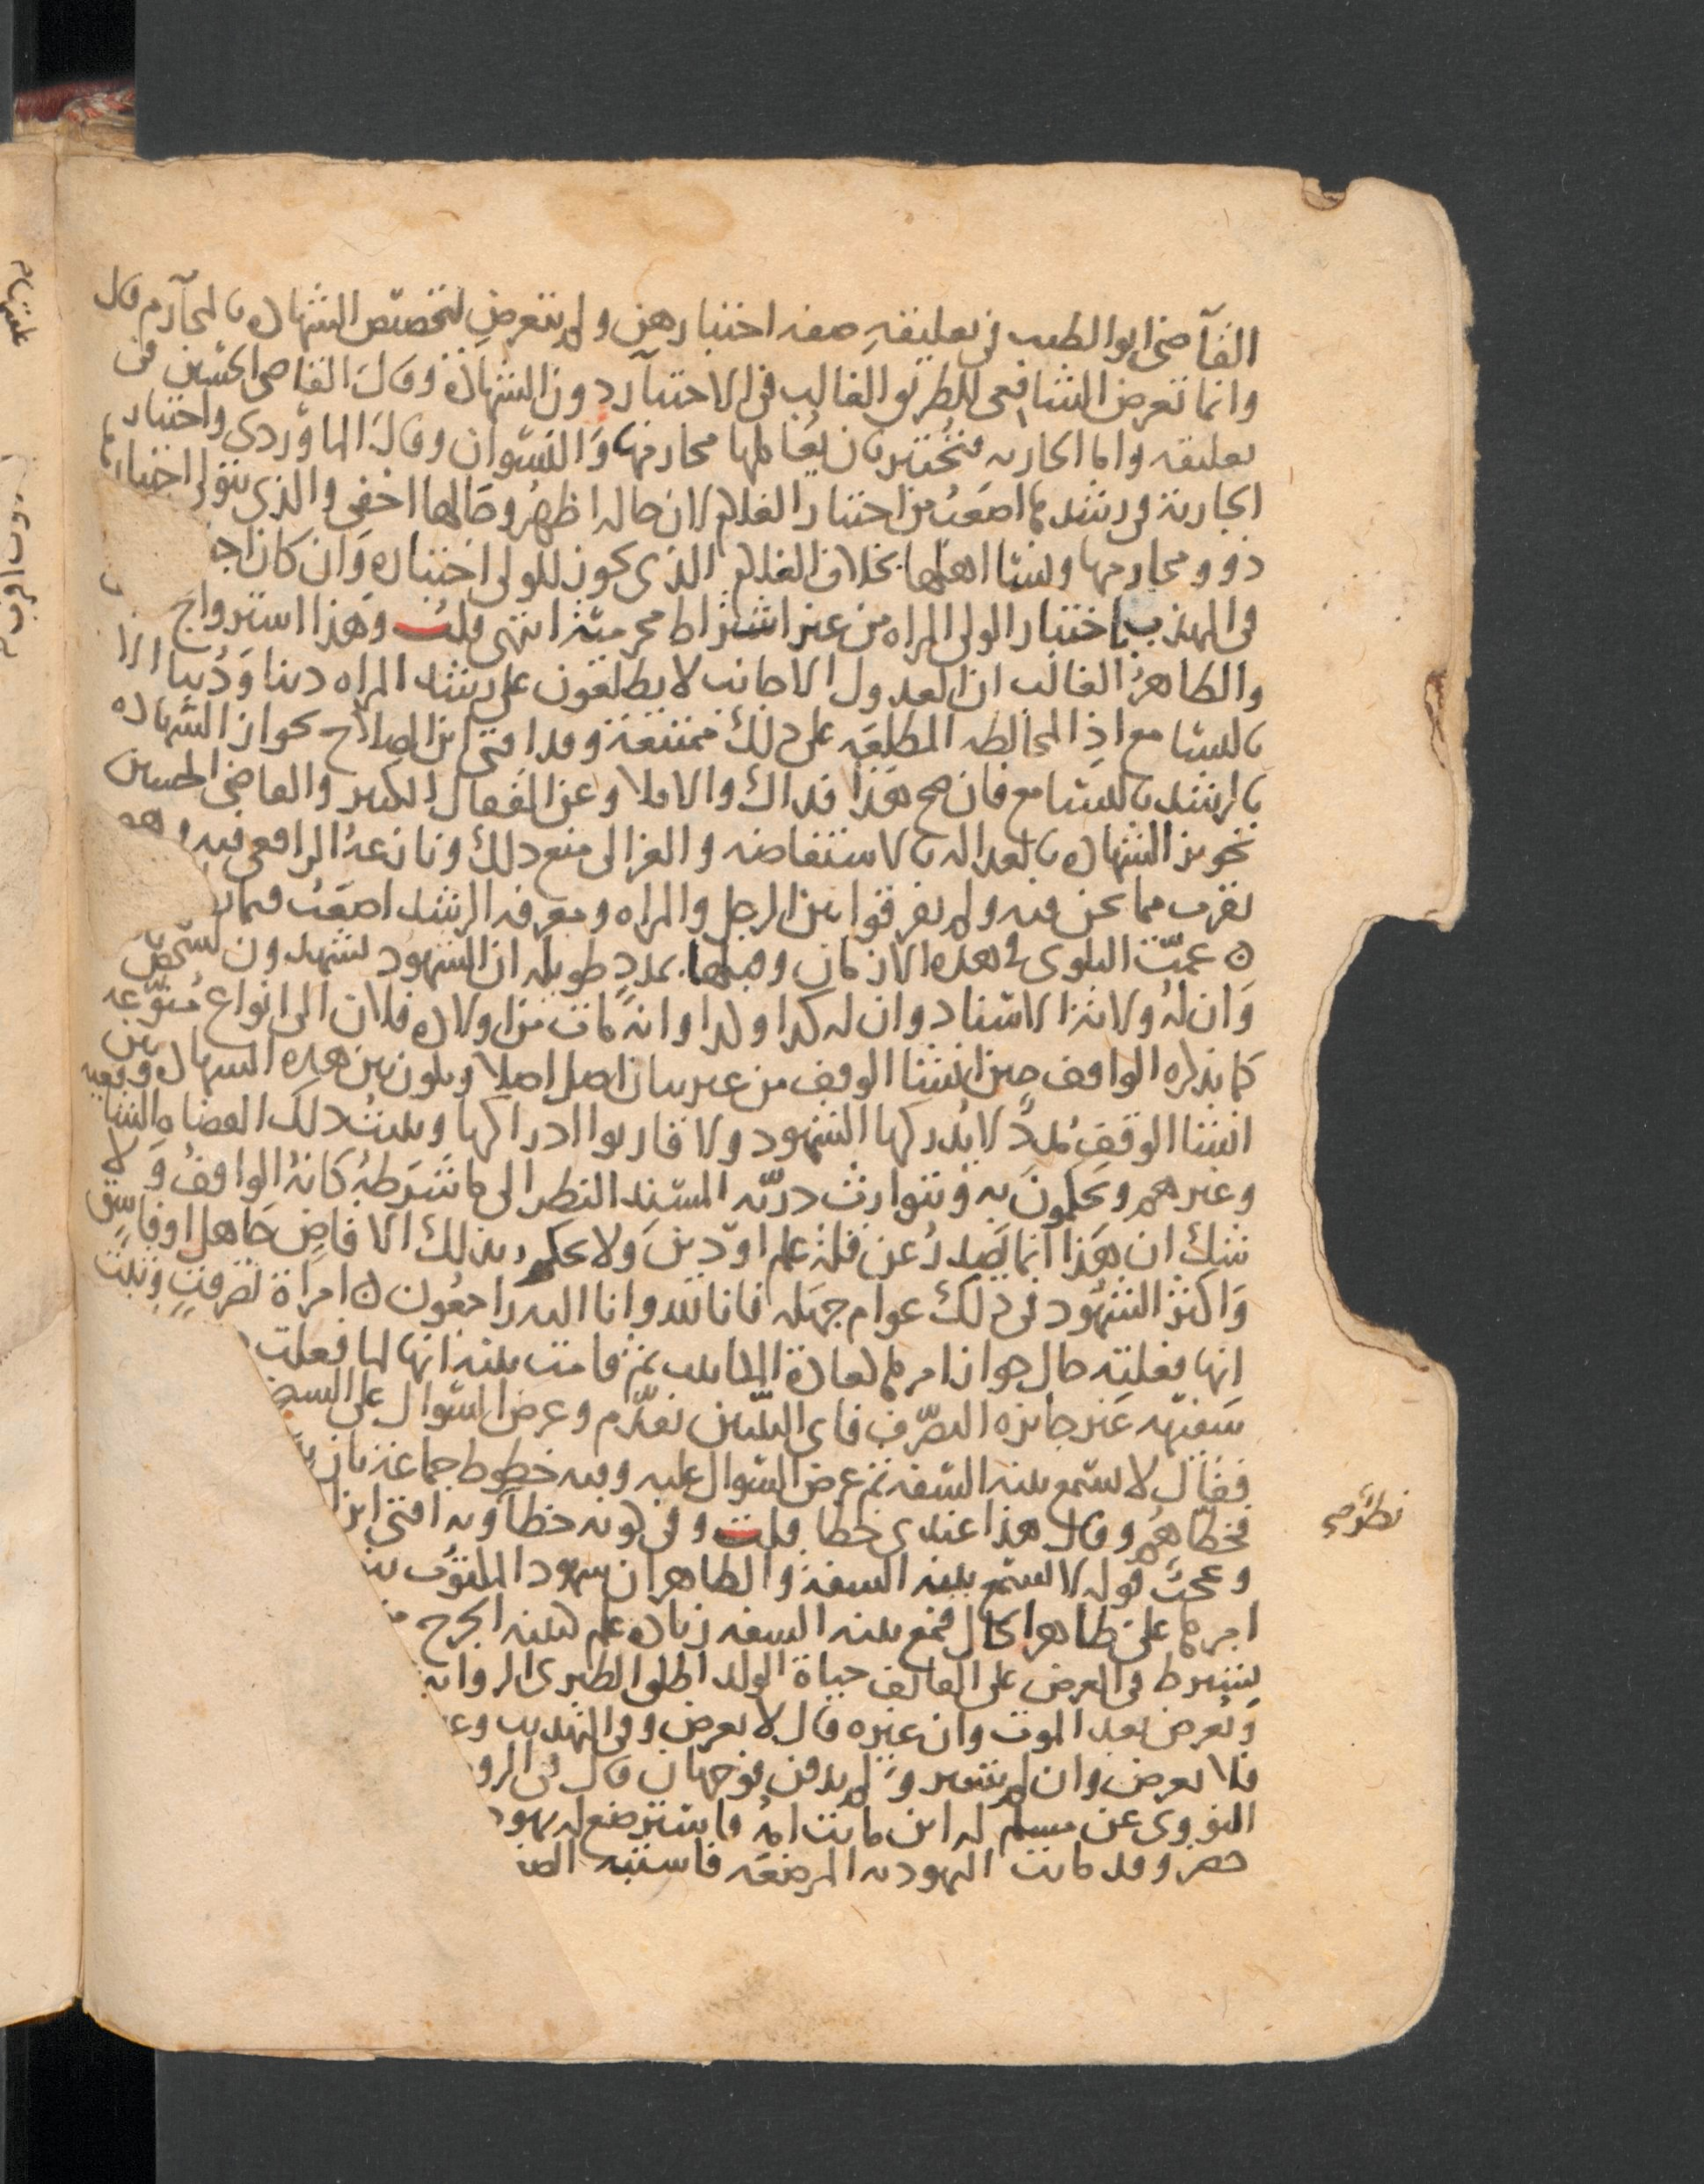 القاضي ابو الطيب في تعليقه صفه اختبارهن ولم يتعرض لتخصيص الشهاده بالمحارم قال
وانما تعرض الشافعي للطريق الغالب في الاختبار دون الشهادة وقال القاضي الحسين في
تعليقه واما الجاريه فتختبر بان يعاملها محارمها والنسوان وقال الماوردي واختبار
الجارية في رشدها اصعب من اختبار الغلام لان حاله اظهر وحالها اخفى والذي يتولى اختبارها
ذوو محارمها ونسا اهلها بخلاف الغلام الذي يكون للولي اختباره وان كان اج
في المهذب باختبار الولي المراه من غير اشتراط محرمية انتهى قلت وهذا استرواح
والظاهر الغالب ان العدول الاجانب لا يطلعون على رشد المراه دينا ودنيا الا
بالتسامع اذ المخالطه المطلعه على ذلك ممتنعة وقد افتى ابن الصلاح بجواز الشهاده
بالرشد بالتسامع فان صح هذا فذاك والا فلا وعن القفال الكبير والقاضي الحسين
تجويز الشهاده بالعداله بالاستفاضه والغزالي منع ذلك ونازعه الرافعي فيه وهو
يقرب مما نحن فيه ولم يفرقوا بين الرجل والمراه ومعرفه الرشد اصعب فيما
ن عمت البلوى في هذه الازمان وقبلها بمدد طويله ان الشهود يشهدون لشخص
وان له ولاية الاسناد وان له كذا ولدا وانه مات من اولاده فلان الى انواع متنوعه
كما يذكره الواقف حين انشا الوقف من غير بيان اصل اصلا ويكون بين هذه الشهاده وبين
انشا الوقف مدد لا يدركها الشهود ولا قاربوا ادراكها ويثبت ذلك القضاه الشافعيه
وغيرهم ويحكمون به وتتوارث ذريه المسند النظر الى ما شرطه كانه الواقف ولا
شك ان هذا انما يصدر عن قلة علم او دين ولا يحكم بذلك الا قاض جاهل او فاسق
واكثر الشهود في ذلك عوام جهله فانا لله وانا اليه راجعون ن امراة تصرفت وثبت
انها فعلته حال جواز امرها لعادة المكاتيب ثم قامت بينه انها لما فعلت
سفيهه غير جايزه التصرف فاي البينتين تقدم وعرض السوال على السب
فقال لا تسمع بينه السفه ثم عرض السوال عليه وفيه خطوط جماعة بان
فخطاهم وقال هذا عندي خطا قلت وفي كونه خطا وبه افتى ابن
وعجب قوله لا تسمع بينه السفه والظاهر ان شهود المكتوب
امرها على ظاهر الحال فمع بينه السفه زياده علم كبينه الجرح
يشترط في العرض على القائف حياة الولد اطلق الطبري الروايه
ويعرض بعد الموت وان غيره قال لا يعرض وفي التهذيب
فلا يعرض وان لم يتغير ولم يدفن فوجهان قال في الرو
النووي عن مسلم له ابن ماتت امه فاسترضع له يهود
حضر وقد ماتت اليهوديه المرضعه فاشتبه